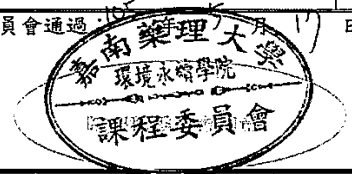 員會通過：年 月 17 日
嘉南藥理大學
環境永續學院
課程委員會